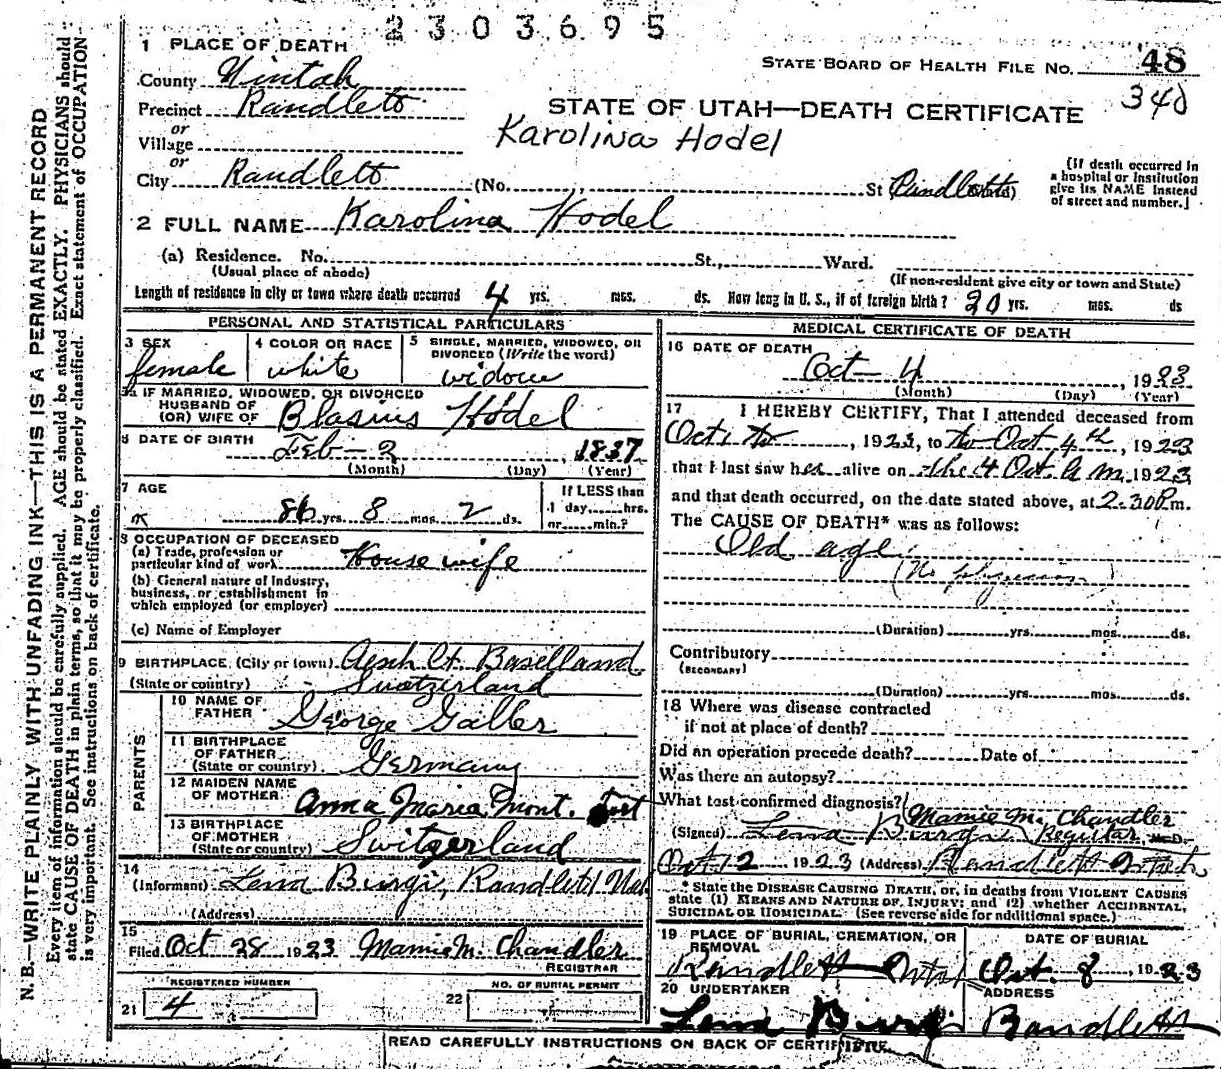 2303695
1 PLACE OF DEATH
STATE BOARD OF HEALTH FILE NO. 48
340
County Uintah
Precinct Randlett
or
Village
or
City Randlett (No. St Randlett)
STATE OF UTAH—DEATH CERTIFICATE
Karolina Hodel
(If death occurred in
a hospital or institution
give its NAME instead
of street and number.)
2 FULL NAME Karolina Hodel
(a) Residence. No. St., Ward.
(Usual place of abode) (If non-resident give city or town and State)
Length of residence in city or town where death occurred 4 yrs. mos. ds. How long in U. S., if of foreign birth? 20 yrs. mos. ds
PERSONAL AND STATISTICAL PARTICULARS
3 SEX
female
4 COLOR OR RACE
white
5 SINGLE, MARRIED, WIDOWED, OR
DIVORCED (Write the word)
widow
5a IF MARRIED, WIDOWED, OR DIVORCED
HUSBAND OF
(OR) WIFE OF Blasius Hodel
6 DATE OF BIRTH Feb - 2 1837
(Month) (Day) (Year)
7 AGE
86 yrs. 8 mos. 2 ds.
If LESS than
1 day, hrs.
or min.?
8 OCCUPATION OF DECEASED
(a) Trade, profession or
particular kind of work House wife
(b) General nature of industry,
business, or establishment in
which employed (or employer)
(c) Name of Employer
9 BIRTHPLACE (City or town) Aesch Ct. Baselland
(State or country) Switzerland
PARENTS
10 NAME OF
FATHER George Galler
11 BIRTHPLACE
OF FATHER
(State or country) Germany
12 MAIDEN NAME
OF MOTHER Anna Maria Mont.
13 BIRTHPLACE
OF MOTHER
(State or country) Switzerland
14
(Informant) Lena Burgi, Randlett Utah
(Address)
15
Filed Oct 28 1923 Mamie M. Chandler
REGISTRAR
REGISTERED NUMBER
21 4
NO. OF BURIAL PERMIT
22
MEDICAL CERTIFICATE OF DEATH
16 DATE OF DEATH
Oct - 4, 1923
(Month) (Day) (Year)
17 I HEREBY CERTIFY, That I attended deceased from
Oct 1, 1923, to Oct 4th, 1923
that I last saw her alive on the 4 Oct. a m. 1923
and that death occurred, on the date stated above, at 2.30 P.m.
The CAUSE OF DEATH* was as follows:
Old age
(No physician)
(Duration) yrs. mos. ds.
Contributory
(SECONDARY)
(Duration) yrs. mos. ds.
18 Where was disease contracted
if not at place of death?
Did an operation precede death? Date of
Was there an autopsy?
What test confirmed diagnosis?
Mamie M. Chandler
(Signed) Lena Burgi Registar, M.D.
Oct 12 1923 (Address) Randlett Utah
* State the DISEASE CAUSING DEATH, or, in deaths from VIOLENT CAUSES
state (1) MEANS AND NATURE OF INJURY; and (2) whether ACCIDENTAL,
SUICIDAL OR HOMICIDAL. (See reverse side for additional space.)
19 PLACE OF BURIAL, CREMATION, OR
REMOVAL
Randlett Utah
DATE OF BURIAL
Oct. 8, 1923
20 UNDERTAKER
Lena Burgi
ADDRESS
Randlett
READ CAREFULLY INSTRUCTIONS ON BACK OF CERTIFICATE.
N. B.—WRITE PLAINLY WITH UNFADING INK—THIS IS A PERMANENT RECORD
Every item of information should be carefully supplied. AGE should be stated EXACTLY. PHYSICIANS should
state CAUSE OF DEATH in plain terms, so that it may be properly classified. Exact statement of OCCUPATION
is very important. See instructions on back of certificate.